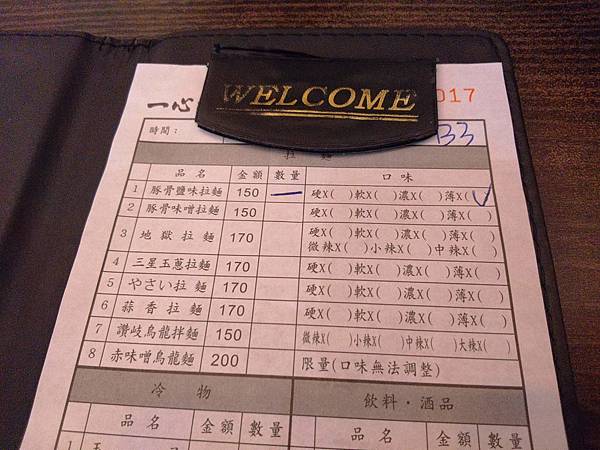 WELCOME
一心 017
時間： 33
拉 麵
品名 金額 數量 口味
1 豚骨鹽味拉麵 150 一 硬X( )軟X( )濃X( )薄X(✓
2 豚骨味噌拉麵 150 硬X( )軟X( )濃X( )薄X( )
3 地獄拉麵 170 硬X( )軟X( )濃X( )薄X( )
微辣X( )小辣X( )中辣X( )
4 三星玉蔥拉麵 170 硬X( )軟X( )濃X( )薄X( )
5 やさい拉麵 170 硬X( )軟X( )濃X( )薄X( )
6 蒜香拉麵 170 硬X( )軟X( )濃X( )薄X( )
7 讚岐烏龍拌麵 150 微辣X( )小辣X( )中辣X( )大辣X( )
8 赤味噌烏龍麵 200 限量(口味無法調整)
冷物 飲料・酒品
品名 金額 數量 品名 金額 數量
1 玉